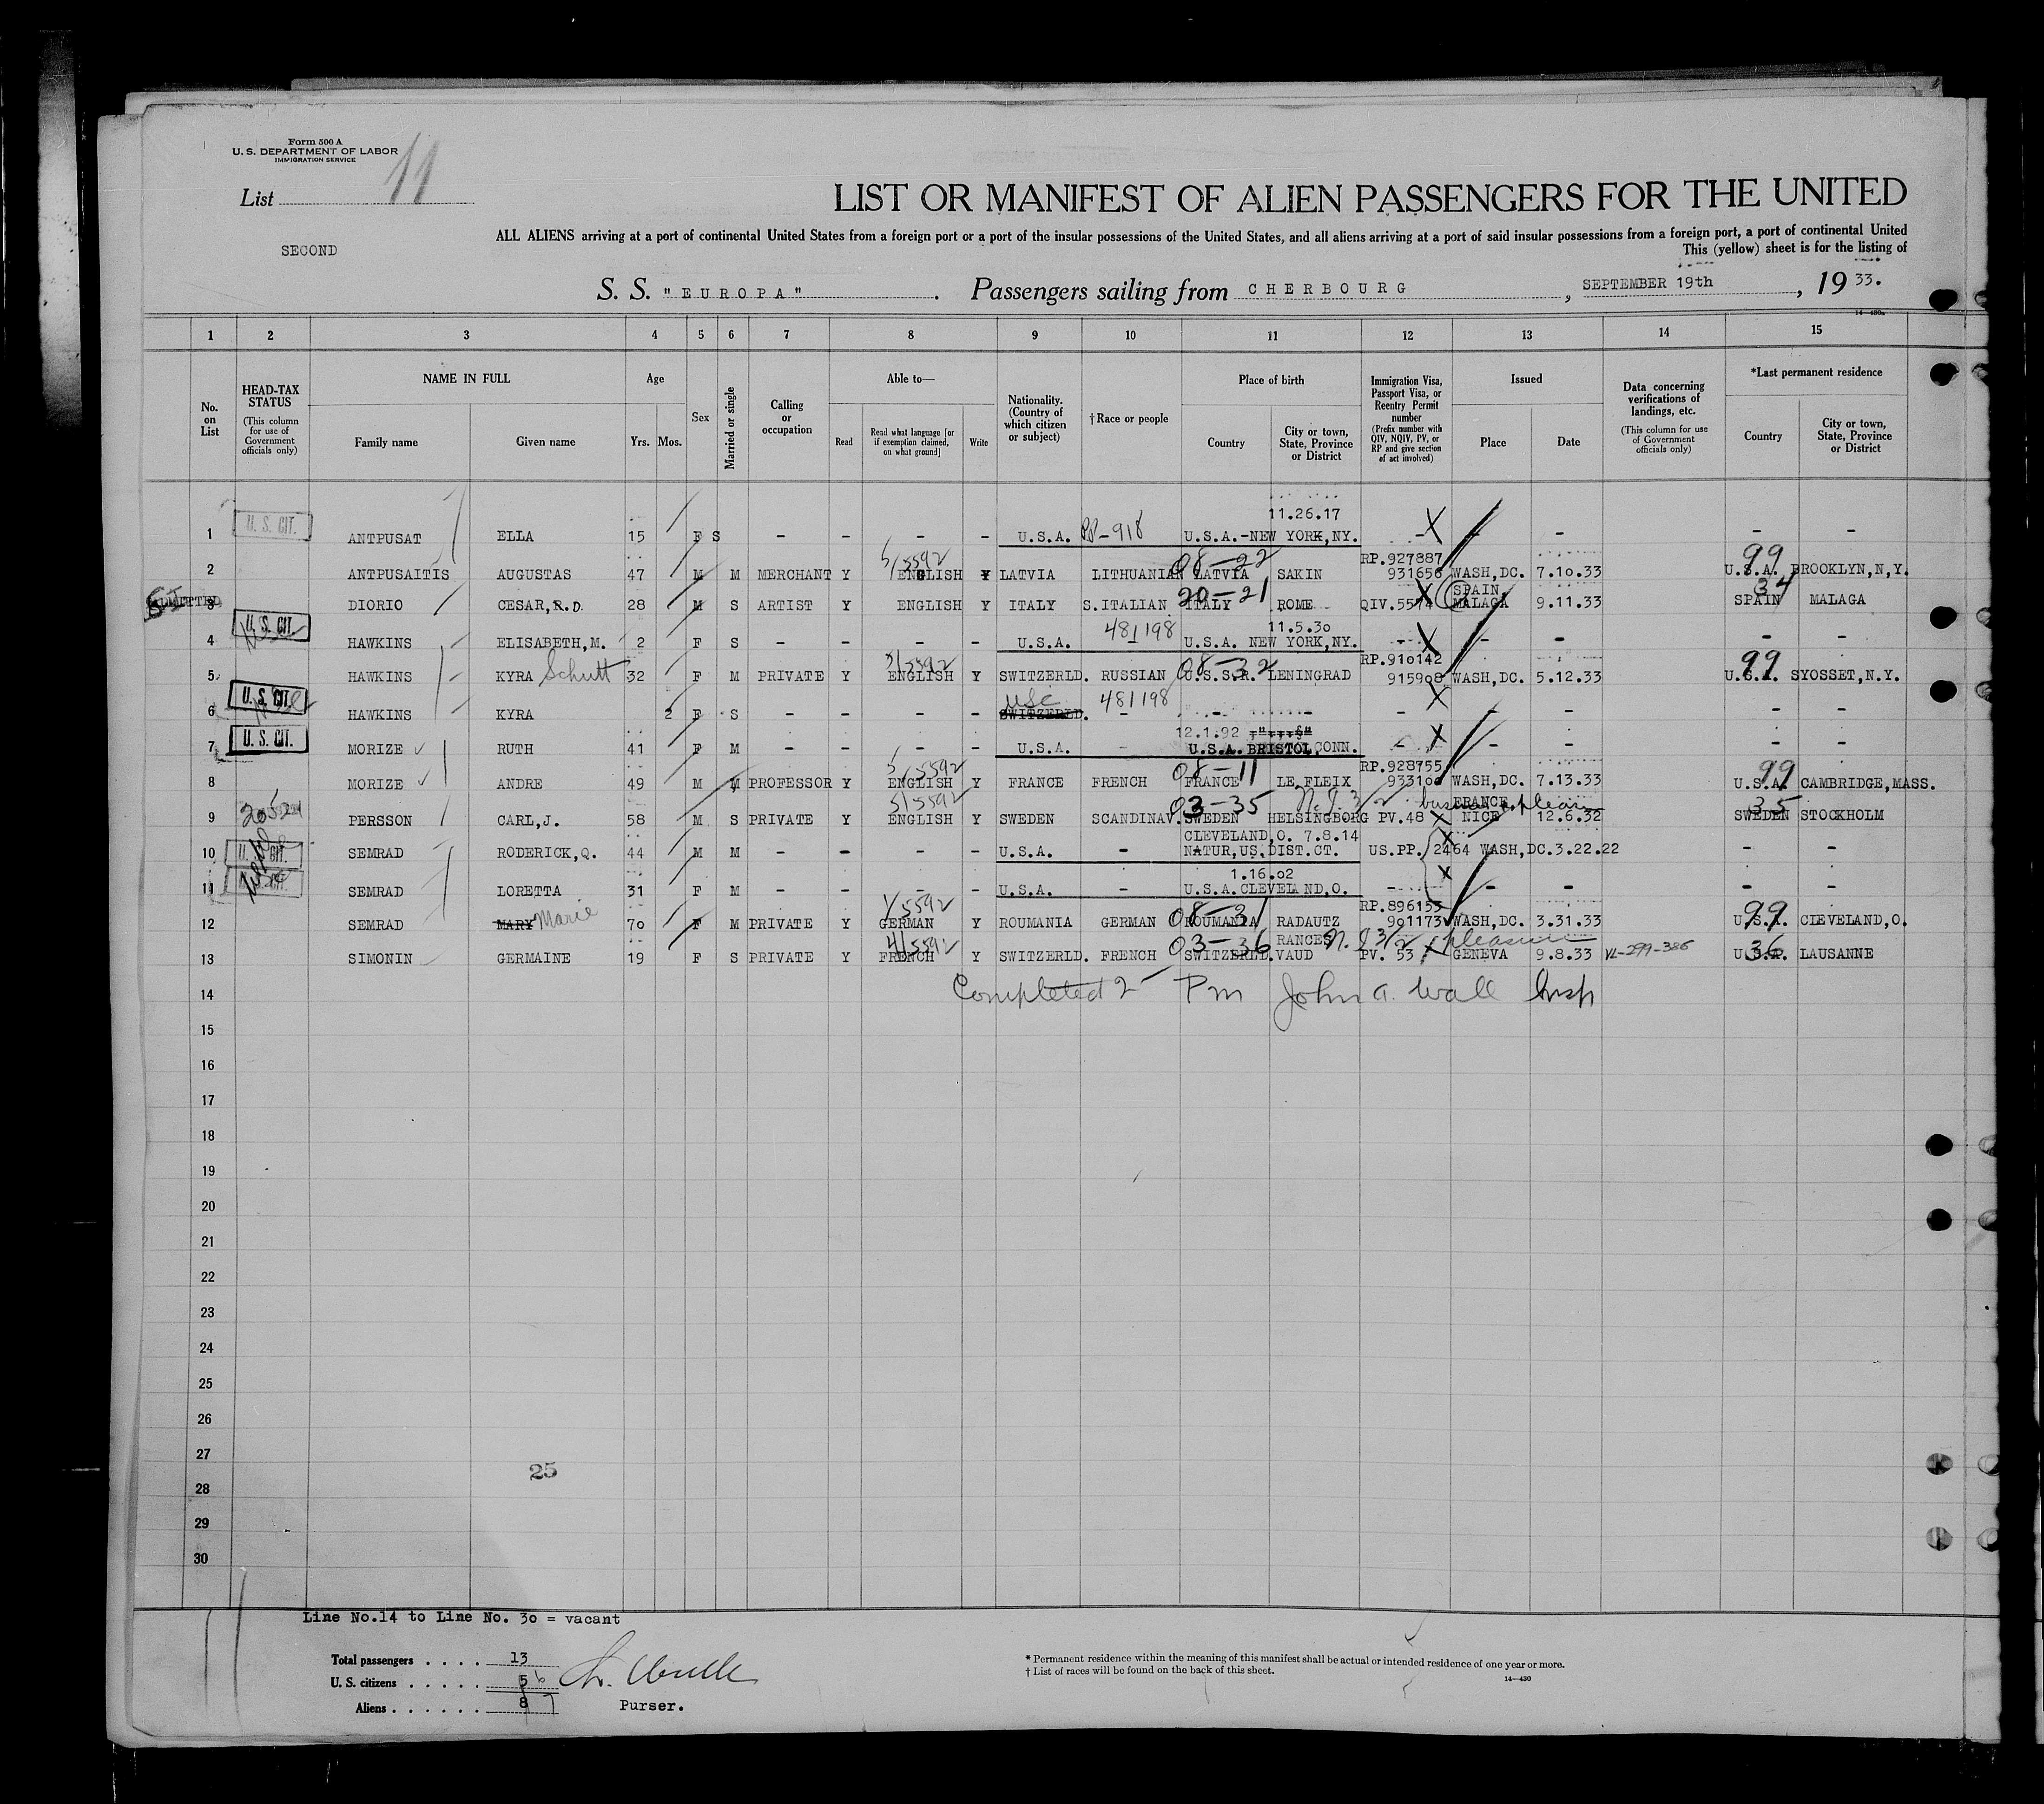 Form 500 A
U. S. DEPARTMENT OF LABOR
IMMIGRATION SERVICE
List 11
LIST OR MANIFEST OF ALIEN PASSENGERS FOR THE UNITED
SECOND
ALL ALIENS arriving at a port of continental United States from a foreign port or a port of the insular possessions of the United States, and all aliens arriving at a port of said insular possessions from a foreign port, a port of continental United
This (yellow) sheet is for the listing of
S. S. "EUROPA". Passengers sailing from CHERBOURG, SEPTEMBER 19th, 19 33.
14-430a
1 2 3 4 5 6 7 8 9 10 11 12 13 14 15
No. on List
HEAD-TAX STATUS (This column for use of Government officials only)
NAME IN FULL Family name Given name
Age Yrs. Mos.
Sex
Married or single
Calling or occupation
Able to— Read Read what language [or if exemption claimed, on what ground] Write
Nationality. (Country of which citizen or subject)
†Race or people
Place of birth Country City or town, State, Province or District
Immigration Visa, Passport Visa, or Reentry Permit number (Prefix number with QIV, NQIV, PV, or RP and give section of act involved)
Issued Place Date
Data concerning verifications of landings, etc. (This column for use of Government officials only)
*Last permanent residence Country City or town, State, Province or District
11.26.17
1 U. S. CIT. ANTPUSAT ELLA 15 F S - - - - U.S.A. PP-918 U.S.A.-NEW YORK,NY. - X - - - -
5/5592 08-22 RP.927887 99
2 ANTPUSAITIS AUGUSTAS 47 M M MERCHANT Y ENGLISH Y LATVIA LITHUANIAN LATVIA SAKIN 931656 WASH,DC. 7.10.33 U.S.A. BROOKLYN,N,Y.
20-21 SPAIN 34
ADMITTED 3 DIORIO CESAR,R.D. 28 M S ARTIST Y ENGLISH Y ITALY S.ITALIAN ITALY ROME QIV.5574 X MALAGA 9.11.33 SPAIN MALAGA
U. S. CIT. 481198 11.5.30
4 HAWKINS ELISABETH,M. 2 F S - - - - U.S.A. - U.S.A. NEW YORK,NY. - X - - - -
5/5592 08-32 RP.910142 99
5 HAWKINS KYRA Schutt 32 F M PRIVATE Y ENGLISH Y SWITZERLD. RUSSIAN U.S.S.R. LENINGRAD 915908 WASH,DC. 5.12.33 U.S.A. SYOSSET,N.Y.
U. S. CIT. USC 481198
6 HAWKINS KYRA 2 F S - - - - SWITZERLD. - - - - X - - - -
U. S. CIT. 12.1.92
7 MORIZE RUTH 41 F M - - - - U.S.A. - U.S.A. BRISTOL,CONN. - X - - - -
5/5592 08-11 RP.928755 99
8 MORIZE ANDRE 49 M M PROFESSOR Y ENGLISH Y FRANCE FRENCH FRANCE LE FLEIX 933100 WASH,DC. 7.13.33 U.S.A. CAMBRIDGE,MASS.
5/5592 03-35 FRANCE 35
9 PERSSON CARL,J. 58 M S PRIVATE Y ENGLISH Y SWEDEN SCANDINAV. SWEDEN HELSINGBORG PV.48 X NICE 12.6.32 SWEDEN STOCKHOLM
CLEVELAND,O. 7.8.14
10 U. S. CIT. SEMRAD RODERICK,Q. 44 M M - - - - U.S.A. - NATUR,US.DIST.CT. US.PP. 2464 WASH,DC.3.22.22 - -
1.16.02
11 U. S. CIT. SEMRAD LORETTA 31 F M - - - - U.S.A. - U.S.A.CLEVELAND,O. - X - - - -
1/5592 08-31 RP.896155 99
12 SEMRAD MARY Marie 70 F M PRIVATE Y GERMAN Y ROUMANIA GERMAN ROUMANIA RADAUTZ 901173 WASH,DC. 3.31.33 U.S.A. CLEVELAND,O.
4/5592 03-36 RANCES pleasure 36
13 SIMONIN GERMAINE 19 F S PRIVATE Y FRENCH Y SWITZERLD. FRENCH SWITZERLD. VAUD PV. 53 X GENEVA 9.8.33 VL-299-386 LAUSANNE
14 Completed 2 Pm John A. Wall Insp
15
16
17
18
19
20
21
22
23
24
25
26
27
25
28
29
30
Line No.14 to Line No. 30 = vacant
Total passengers . . . . 13
U. S. citizens . . . . . 5 6
Aliens . . . . . . 8 7
Purser.
* Permanent residence within the meaning of this manifest shall be actual or intended residence of one year or more.
† List of races will be found on the back of this sheet.
14-430